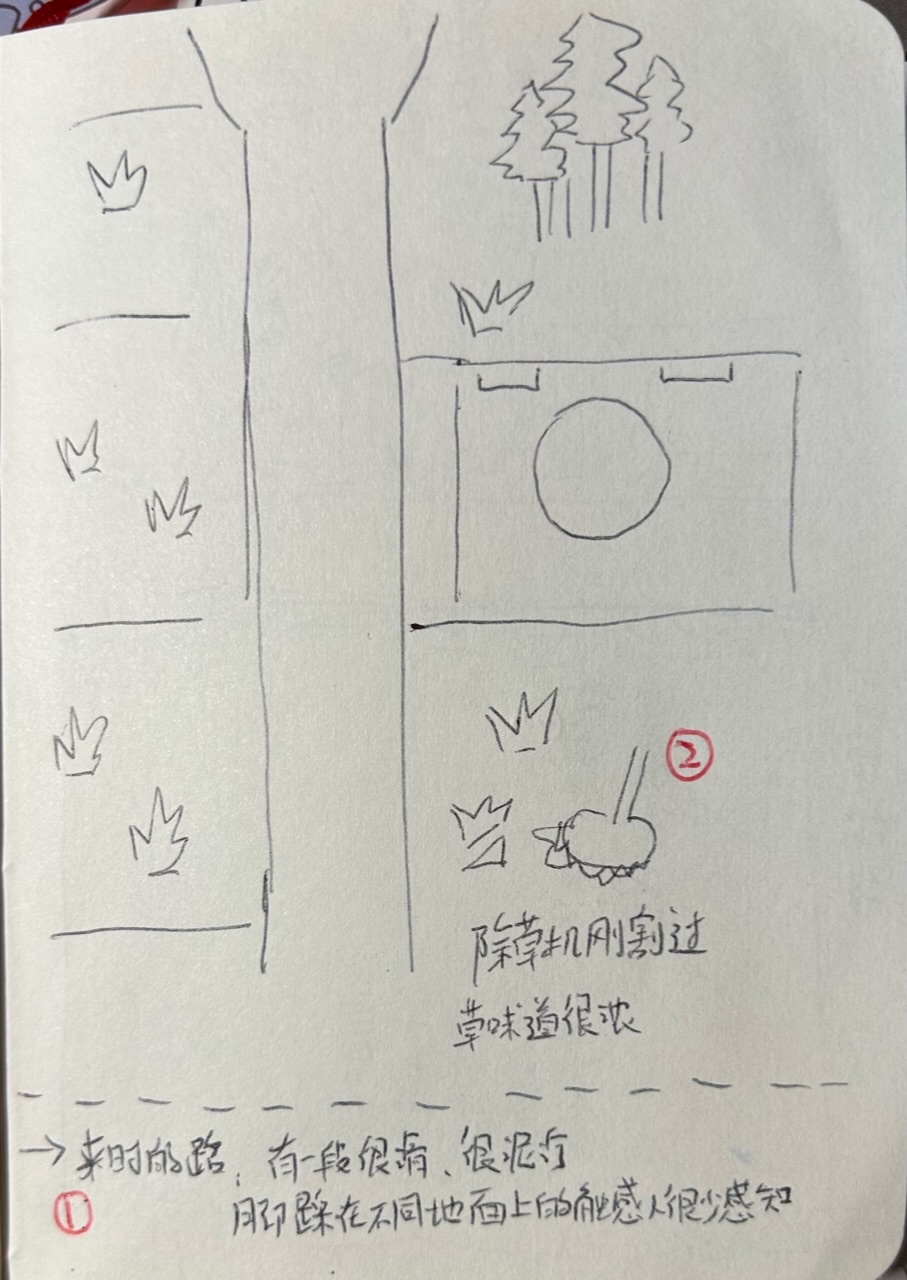 ②
除草机刚割过
草味道很浓
→ 来时的路，有一段很滑、很泥泞
① 脚踩在不同地面上的触感人很少感知